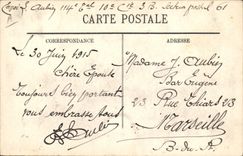 Aubin 114e 103 Cie 3 B. Secteur postal 61
CARTE POSTALE
CORRESPONDANCE
ADRESSE
Le 30 Juin 1915
Chère Épouse
Toujours bien portant
vous embrasse tous
Aubin
Madame J. Aubin
Bar Eugène
23 Rue Thiars 23
Marseille
B-du-R